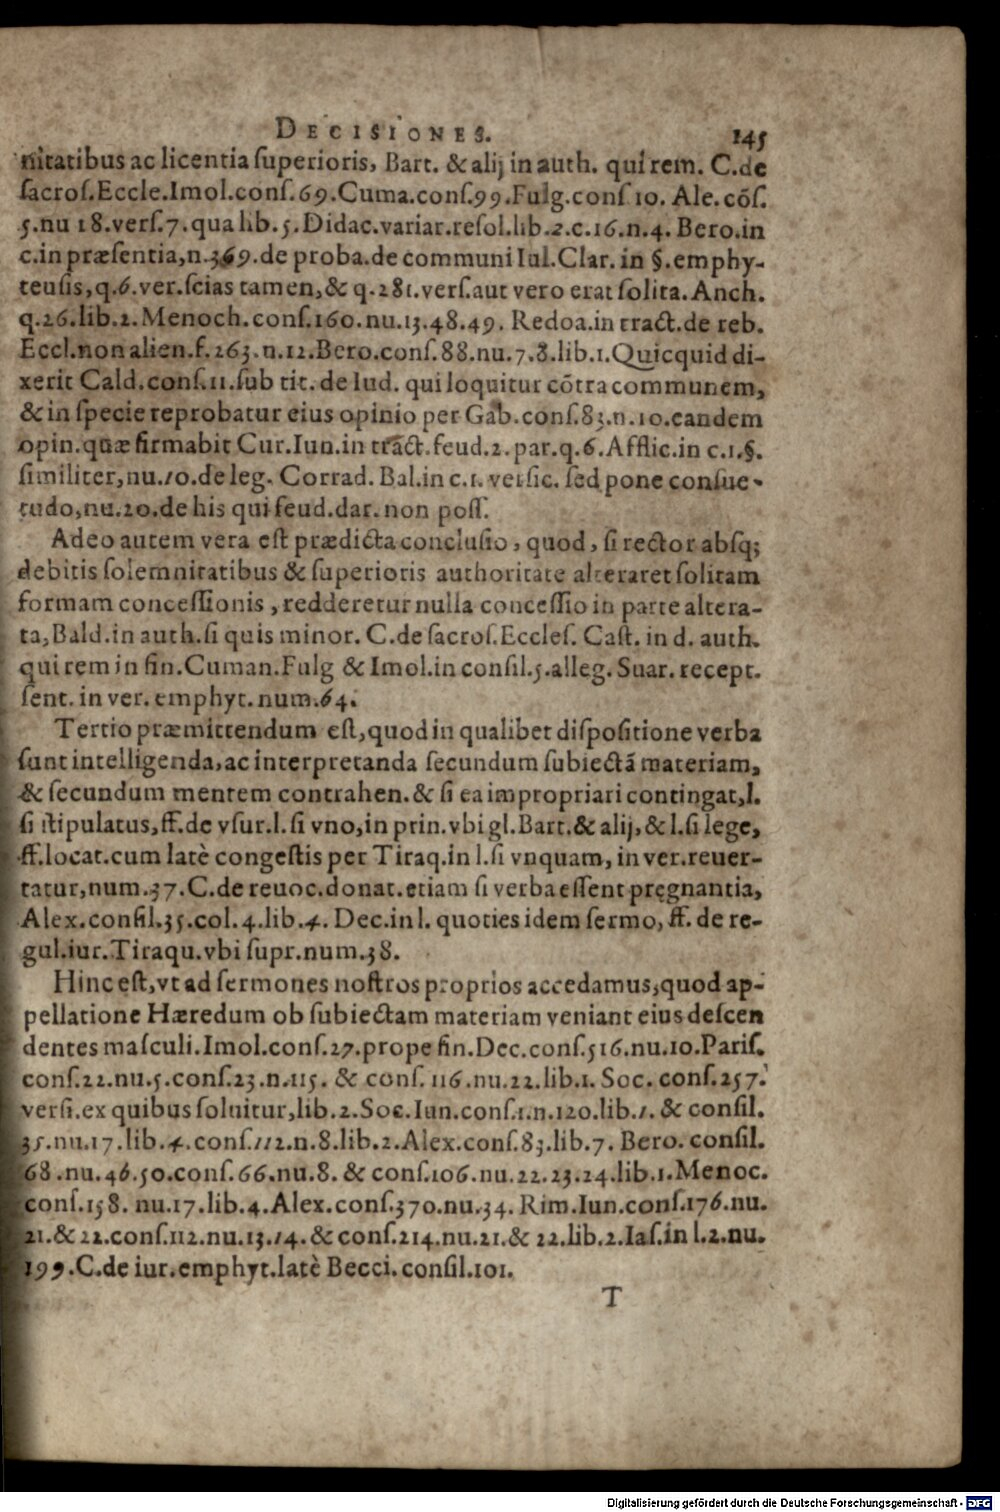 DECISIONES. 145
nitatibus ac licentia superioris, Bart. & alij in auth. qui rem. C.de
sacros.Eccle.Imol.cons.69.Cuma.cons.99.Fulg.cons 10. Ale.cõs.
5.nu 18.vers.7.qua lib.5.Didac.variar.resol.lib.2.c.16.n.4. Bero.in
c.in præsentia,n.369.de proba.de communi Iul.Clar. in §.emphy-
teusis,q.6.ver.scias tamen,& q.281.vers.aut vero erat solita. Anch.
q.26.lib.2.Menoch.cons.160.nu.13.48.49. Redoa.in tract.de reb.
Eccl.non alien.f.263.n.12.Bero.cons.88.nu.7.8.lib.1.Quicquid di-
xerit Cald.cons.11.sub tit. de Iud. qui loquitur cõtra communem,
& in specie reprobatur eius opinio per Gab.cons.83.n.10.eandem
opin.quæ firmabit Cur.Iun.in tract.feud.2.par.q.6.Afflic.in c.1.§.
similiter,nu.10.de leg. Corrad. Bal.in c.1. versic. sed pone consue-
tudo,nu.20.de his qui feud.dar. non poss.
Adeo autem vera est prædicta conclusio, quod, si rector absq;
debitis solemnitatibus & superioris authoritate alteraret solitam
formam concessionis, redderetur nulla concessio in parte altera-
ta,Bald.in auth.si quis minor. C.de sacros.Eccles. Cast. in d. auth.
qui rem in fin.Cuman.Fulg & Imol.in consil.5.alleg. Suar. recept.
sent. in ver. emphyt.num.64.
Tertio præmittendum est,quod in qualibet dispositione verba
sunt intelligenda,ac interpretanda secundum subiectã materiam,
& secundum mentem contrahen.& si ea impropriari contingat,l.
si stipulatus,ff.de vsur.l.si vno,in prin.vbi gl.Bart.& alij,& l.si lege,
ff.locat.cum latè congestis per Tiraq.in l.si vnquam, in ver.reuer-
tatur,num.37.C.de reuoc.donat.etiam si verba essent pręgnantia,
Alex.consil.35.col.4.lib.4. Dec.in l. quoties idem sermo, ff. de re-
gul.iur.Tiraqu.vbi supr.num.38.
Hinc est,vt ad sermones nostros proprios accedamus,quod ap-
pellatione Hæredum ob subiectam materiam veniant eius descen
dentes masculi.Imol.cons.27.prope fin.Dec.cons.516.nu.10.Paris.
cons.22.nu.5.cons.23.n.115. & cons. 116.nu.22.lib.1. Soc. cons.257.
versi.ex quibus soluitur,lib.2.Soc.Iun.cons.1.n.120.lib.1. & consil.
35.nu.17.lib.4.cons.112.n.8.lib.2.Alex.cons.83.lib.7. Bero. consil.
68.nu.46.50.cons.66.nu.8. & cons.106.nu.22.23.24.lib.1.Menoc.
cons.158. nu.17.lib.4.Alex.cons.370.nu.34. Rim.Iun.cons.176.nu.
21.& 22.cons.112.nu.13.14.& cons.214.nu.21.& 22.lib.2.Ias.in l.2.nu.
199.C.de iur.emphyt.latè Becci.consil.101.
T
Digitalisierung gefördert durch die Deutsche Forschungsgemeinschaft - DFG